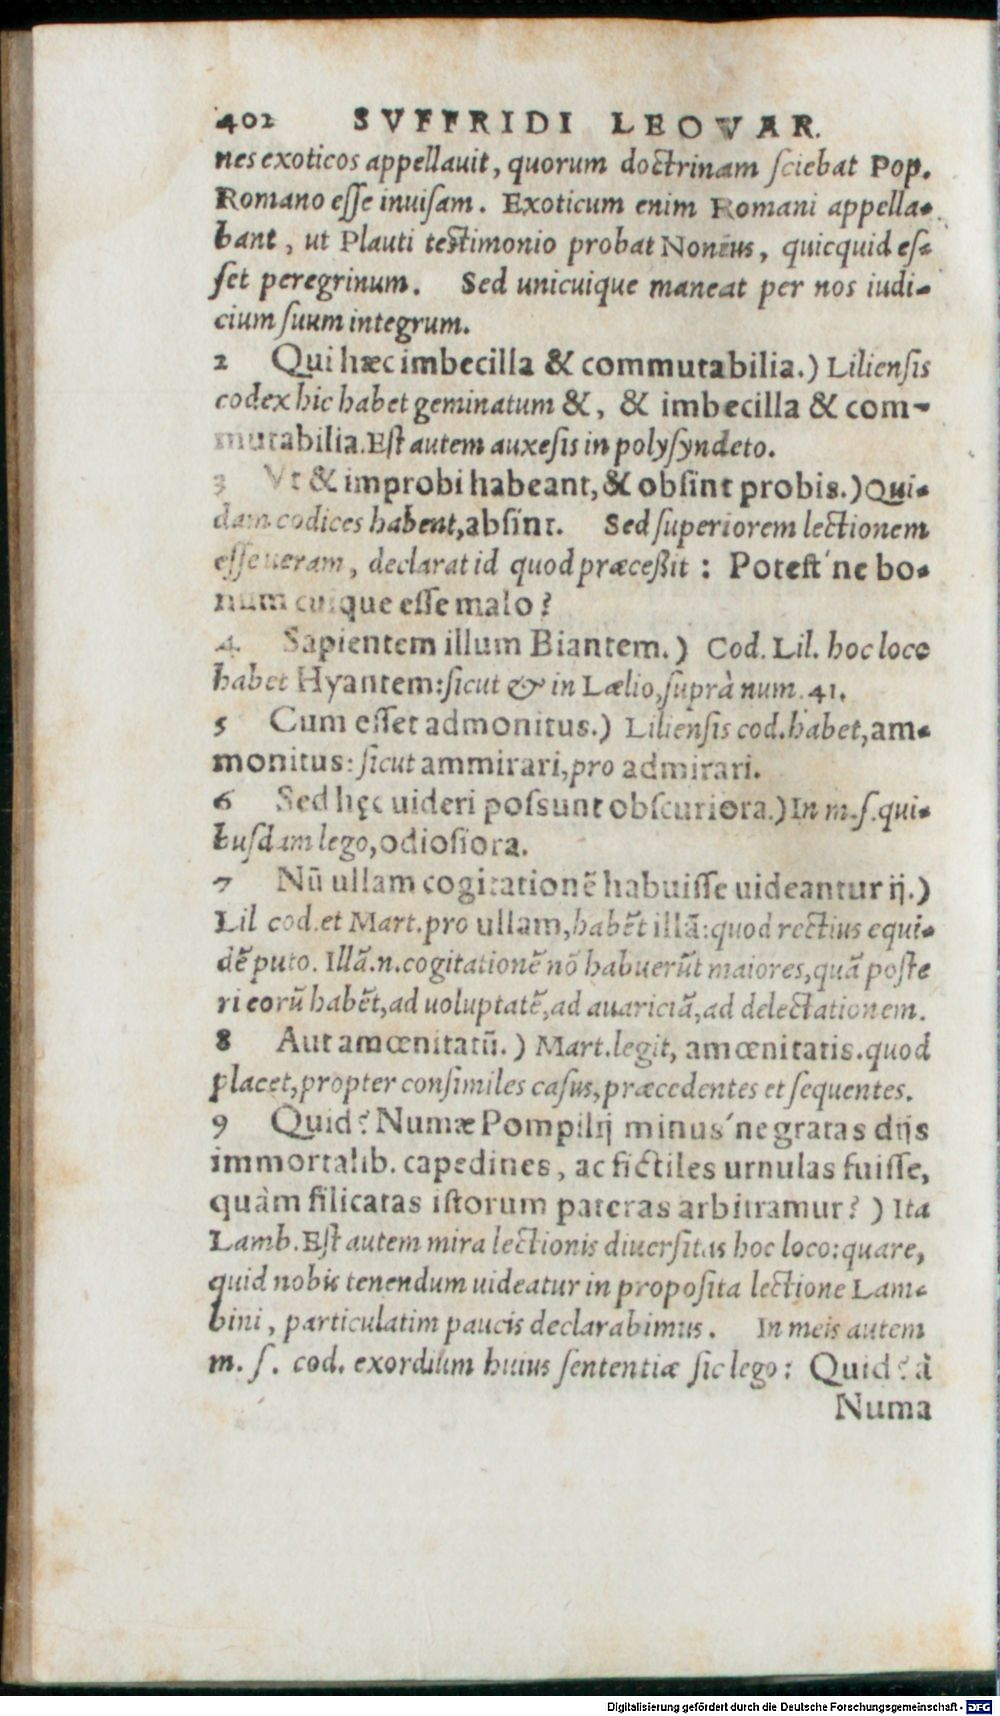 402 SVFFRIDI LEOVAR.
nes exoticos appellauit, quorum doctrinam ſciebat Pop.
Romano eſſe inuiſam. Exoticum enim Romani appella-
bant, ut Plauti teſtimonio probat Nonius, quicquid eſ-
ſet peregrinum. Sed unicuique maneat per nos iudi-
cium ſuum integrum.
2 Qui hæc imbecilla & commutabilia.) Lilienſis
codex hic habet geminatum &, & imbecilla & com-
mutabilia. Eſt autem auxeſis in polyſyndeto.
3 Vt & improbi habeant, & obſint probis.) Qui-
dam codices habent, abſint. Sed ſuperiorem lectionem
eſſe ueram, declarat id quod præceßit: Poteſt'ne bo-
num cuique eſſe malo?
4 Sapientem illum Biantem.) Cod. Lil. hoc loco
habet Hyantem: ſicut & in Lælio, ſuprà num. 41.
5 Cum eſſet admonitus.) Lilienſis cod. habet, am-
monitus: ſicut ammirari, pro admirari.
6 Sed hęc uideri poſsunt obſcuriora.) In m. ſ. qui-
buſdam lego, odioſiora.
7 Nū ullam cogitationē habuiſſe uideantur ij.)
Lil cod. et Mart. pro ullam, habēt illā: quod rectius equi-
dē puto. Illā.n. cogitationē nō habuerūt maiores, quā poſte
ri eorū habēt, ad uoluptatē, ad auariciā, ad delectationem.
8 Aut amœnitatū.) Mart. legit, amœnitatis. quod
placet, propter conſimiles caſus, præcedentes et ſequentes.
9 Quid? Numæ Pompilij minus'ne gratas dijs
immortalib. capedines, ac fictiles urnulas fuiſſe,
quàm filicatas iſtorum pateras arbitramur?) Ita
Lamb. Eſt autem mira lectionis diuerſitas hoc loco: quare,
quid nobis tenendum uideatur in propoſita lectione Lam-
bini, particulatim paucis declarabimus. In meis autem
m. ſ. cod. exordium huius ſententiæ ſic lego: Quid? à
Numa
Digitalisierung gefördert durch die Deutsche Forschungsgemeinschaft - DFG